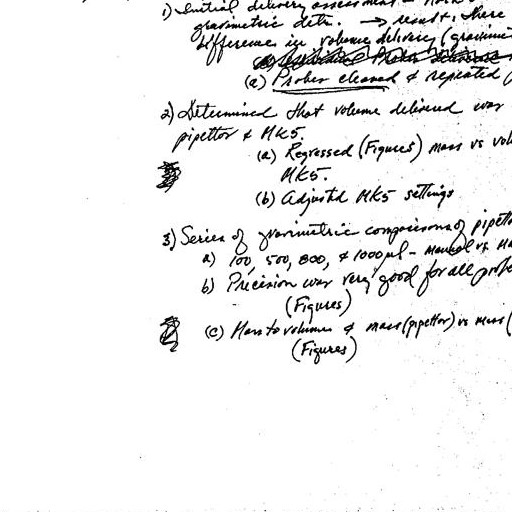 1) Initial delivery assessment -
gravimetric detn. → result, there
difference in volume delivery (gravime
(a) Probes cleaned & repeated
2) Determined that volume delivered was
pipettor & MK5.
(a) Regressed (Figures) mass vs vol
MK5.
(b) Adjusted MK5 settings
3) Series of gravimetric comparisons of pipett
a) 100, 500, 800, & 1000 µl - manual vs Ma
b) Precision was very good for all probe
(Figures)
(c) Mass to volumes & mass (pipettor) vs mass (
(Figures)